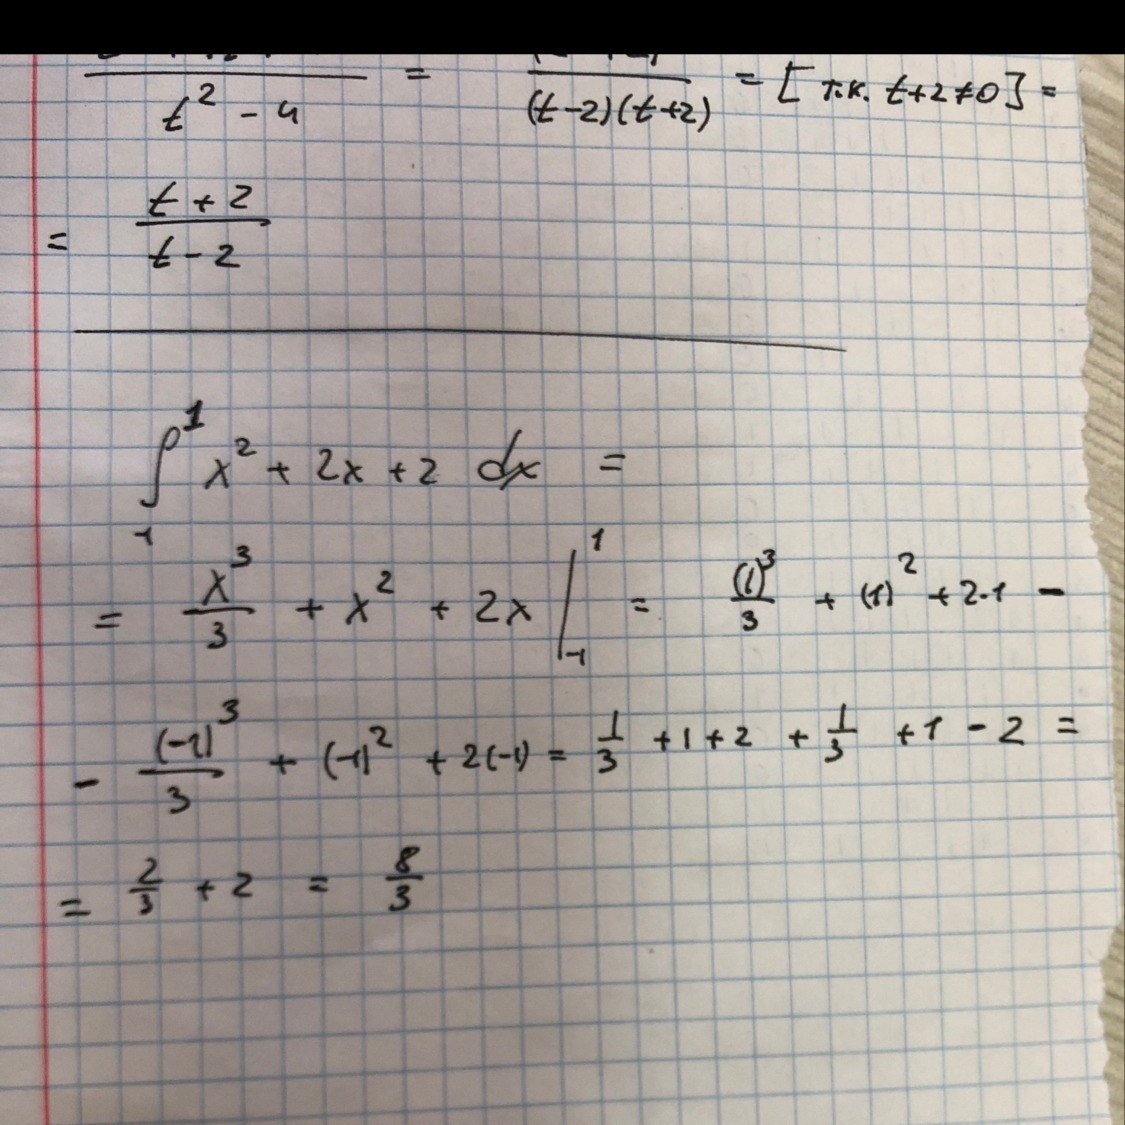 t² - 4 = (t-2)(t+2) = [т.к. t+2≠0] =
= t + 2 / t - 2
∫₋₁¹ x² + 2x + 2 dx =
= x³/3 + x² + 2x |₋₁¹ = (1)³/3 + (1)² + 2·1 -
- (-1)³/3 + (-1)² + 2(-1) = 1/3 + 1 + 2 + 1/3 + 1 - 2 =
= 2/3 + 2 = 8/3